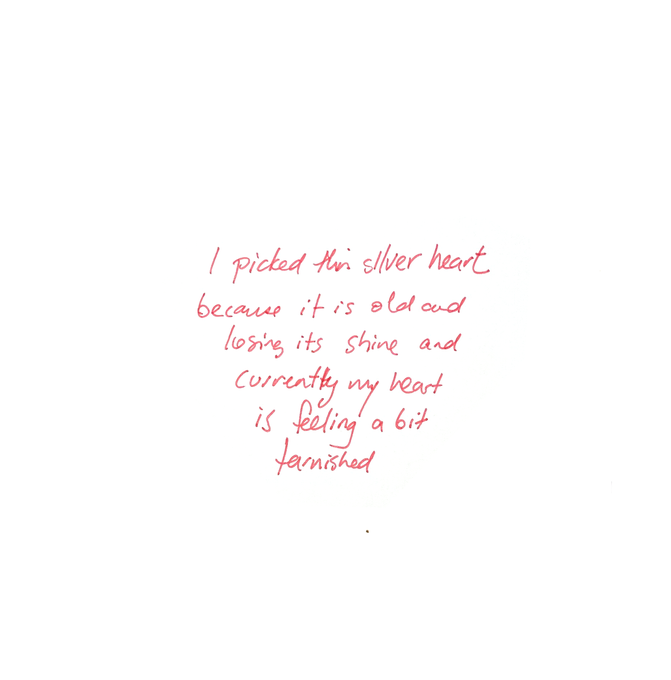 I picked this silver heart
because it is old and
losing its shine and
currently my heart
is feeling a bit
tarnished